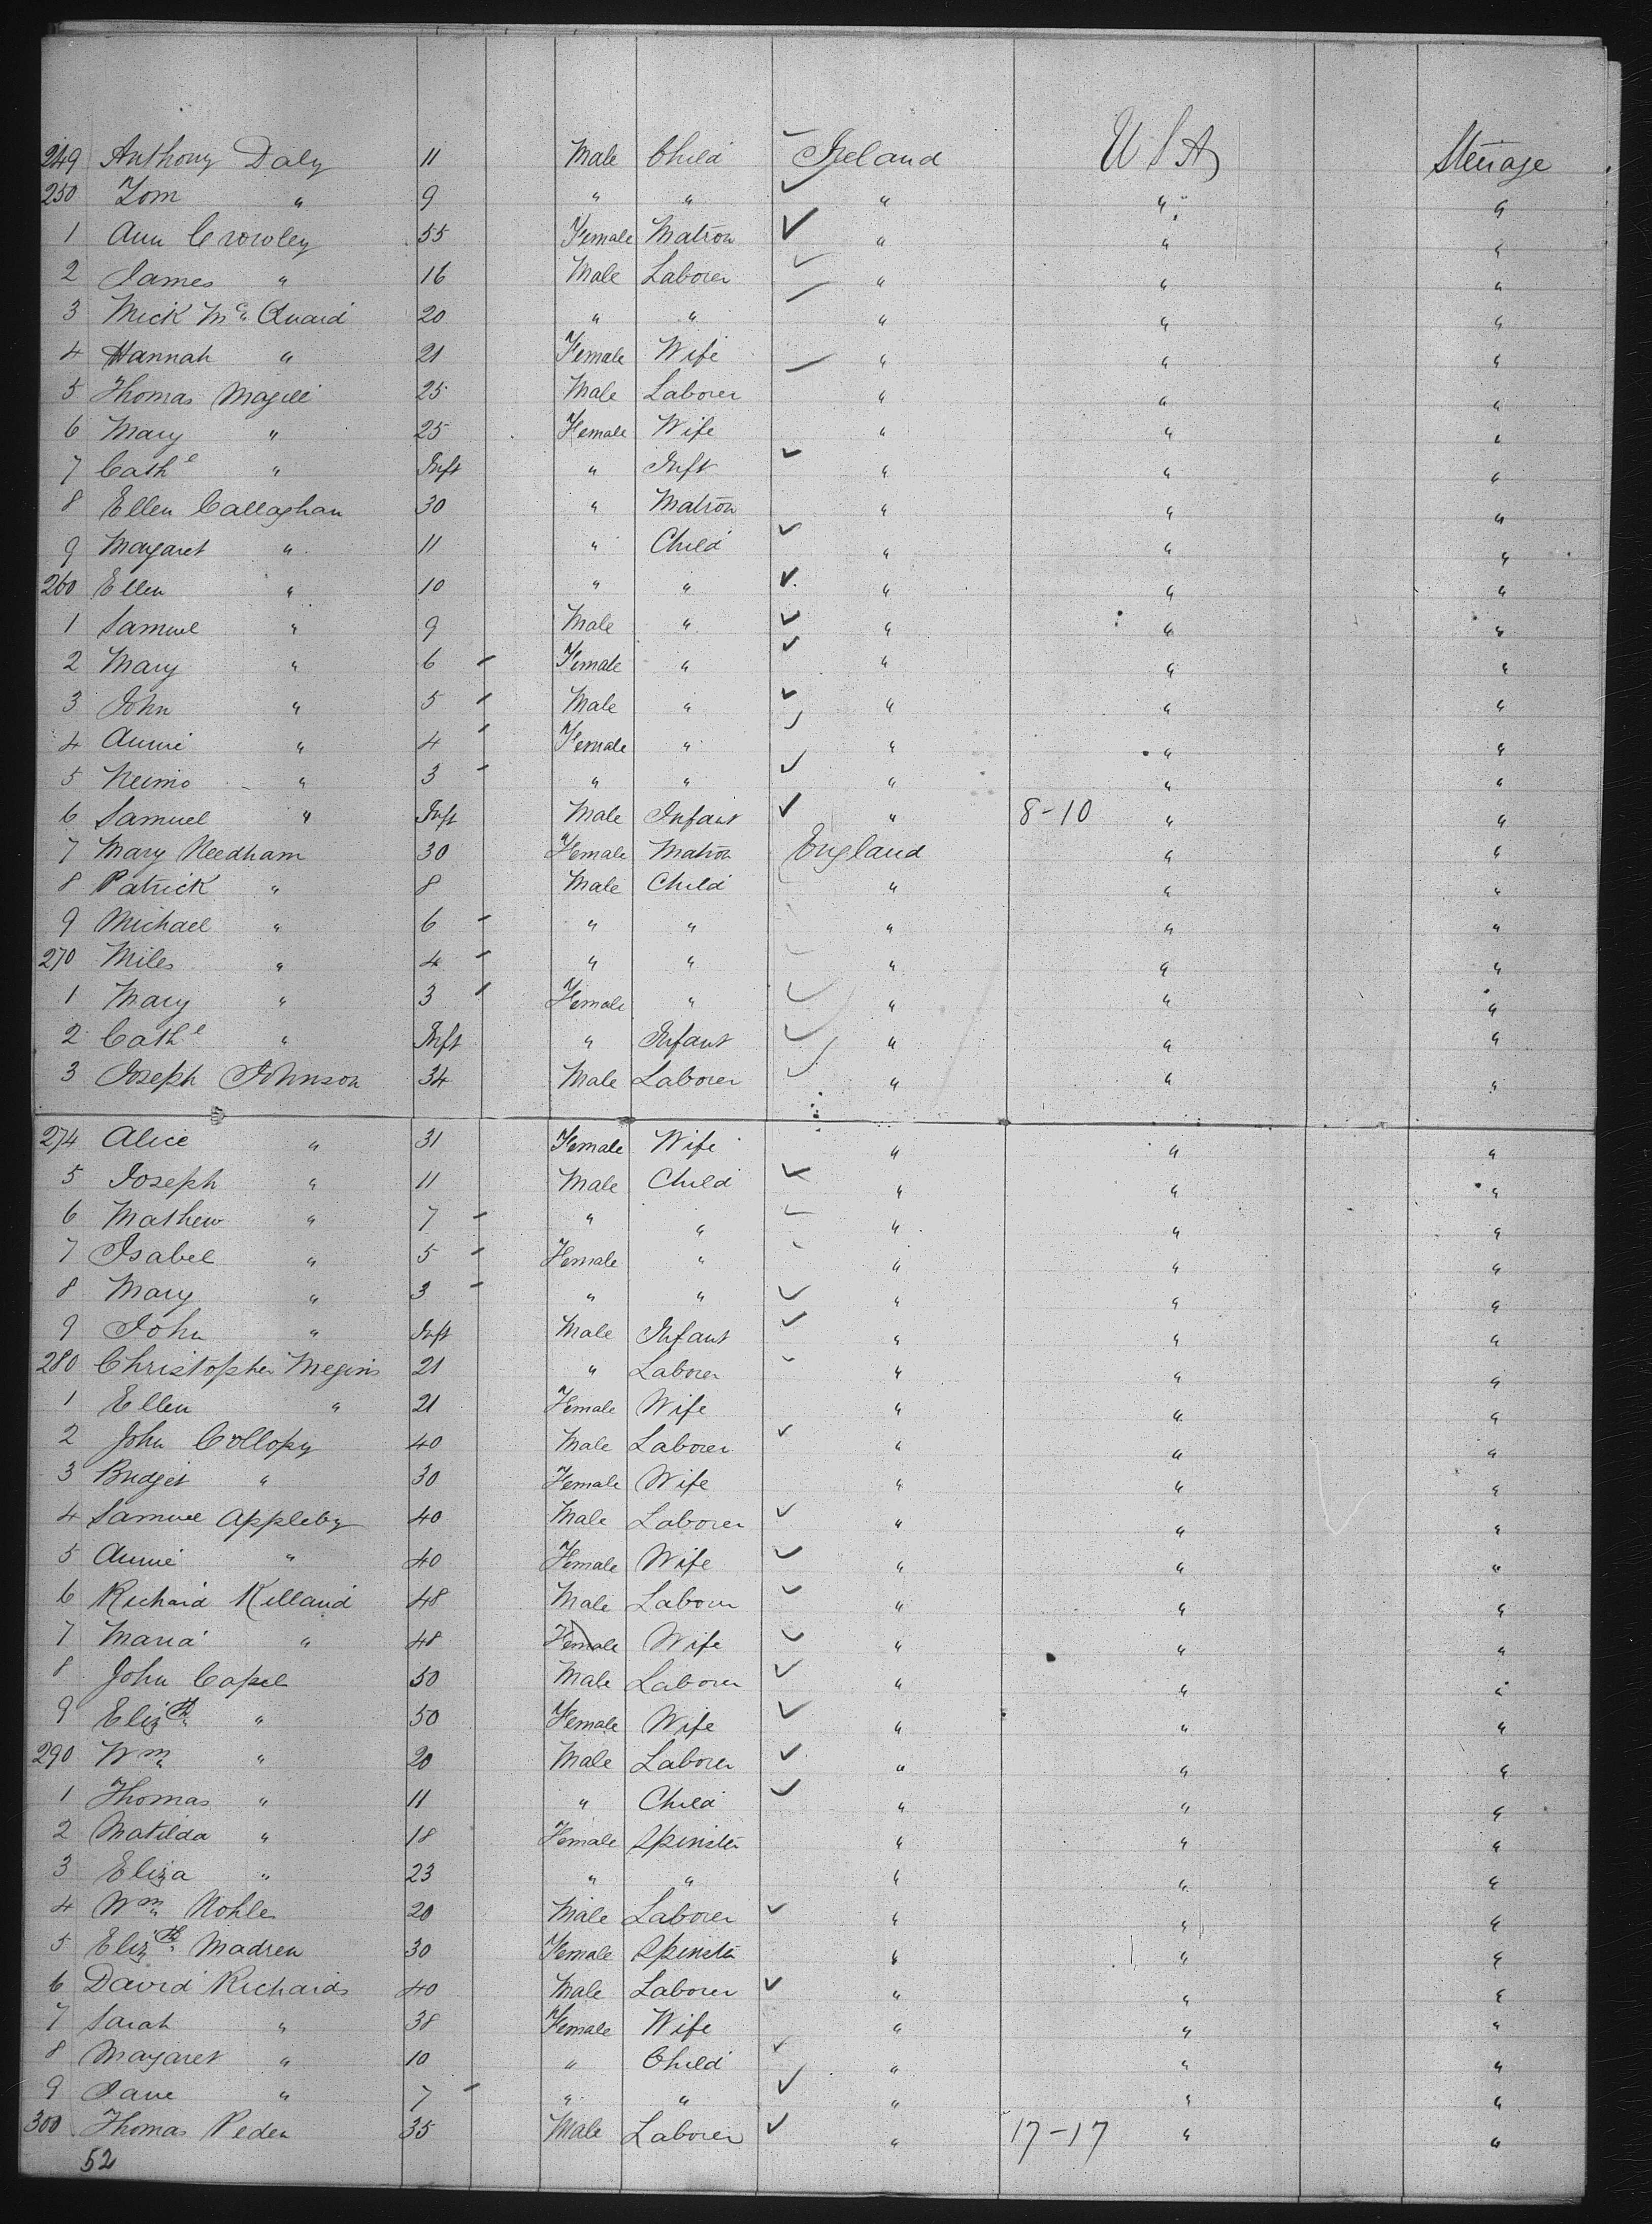 249 Anthony Daly 11 Male Child Ireland U S A Steerage
250 Tom " 9 " " " " "
1 Ann Crowley 55 Female Matron " " "
2 James " 16 Male Laborer " " "
3 Mick Mc Quaid 20 " " " " "
4 Hannah " 21 Female Wife " " "
5 Thomas Magill 25 Male Laborer " " "
6 Mary " 25 Female Wife " " "
7 Cathe " Inft " Inft " " "
8 Ellen Callaghan 30 " Matron " " "
9 Margaret " 11 " Child " " "
260 Ellen " 10 " " " " "
1 Samuel " 9 Male " " " "
2 Mary " 6 Female " " " "
3 John " 5 Male " " " "
4 Annie " 4 Female " " " "
5 " 3 " " " " "
6 Samuel " Inft Male Infant " 8-10 " "
7 Mary Needham 30 Female Matron England " "
8 Patrick " 8 Male Child " " "
9 Michael " 6 " " " " "
270 Miles " 4 " " " " "
1 Mary " 3 Female " " " "
2 Cathe " Inft " Infant " " "
3 Joseph Johnson 34 Male Laborer " " "
274 Alice " 31 Female Wife " " "
5 Joseph " 11 Male Child " " "
6 Mathew " 7 " " " " "
7 Isabel " 5 Female " " " "
8 Mary " 3 " " " " "
9 John " Inft Male Infant " " "
280 Christopher Megins 21 " Laborer " " "
1 Ellen " 21 Female Wife " " "
2 John Collopy 40 Male Laborer " " "
3 Bridget " 30 Female Wife " " "
4 Samuel Appleby 40 Male Laborer " " "
5 Annie " 40 Female Wife " " "
6 Richard Killand 48 Male Laborer " " "
7 Maria " 48 Female Wife " " "
8 John Capel 50 Male Laborer " " "
9 Elizth " 50 Female Wife " " "
290 Wm " 20 Male Laborer " " "
1 Thomas " 11 " Child " " "
2 Matilda " 18 Female Spinster " " "
3 Eliza " 23 " " " " "
4 Wm Nohle 20 Male Laborer " " "
5 Elizth Madren 30 Female Spinster " " "
6 David Richards 40 Male Laborer " " "
7 Sarah " 38 Female Wife " " "
8 Margaret " 10 " Child " " "
9 Jane " 7 " " " " "
300 Thomas Peden 35 Male Laborer " 17-17 " "
52